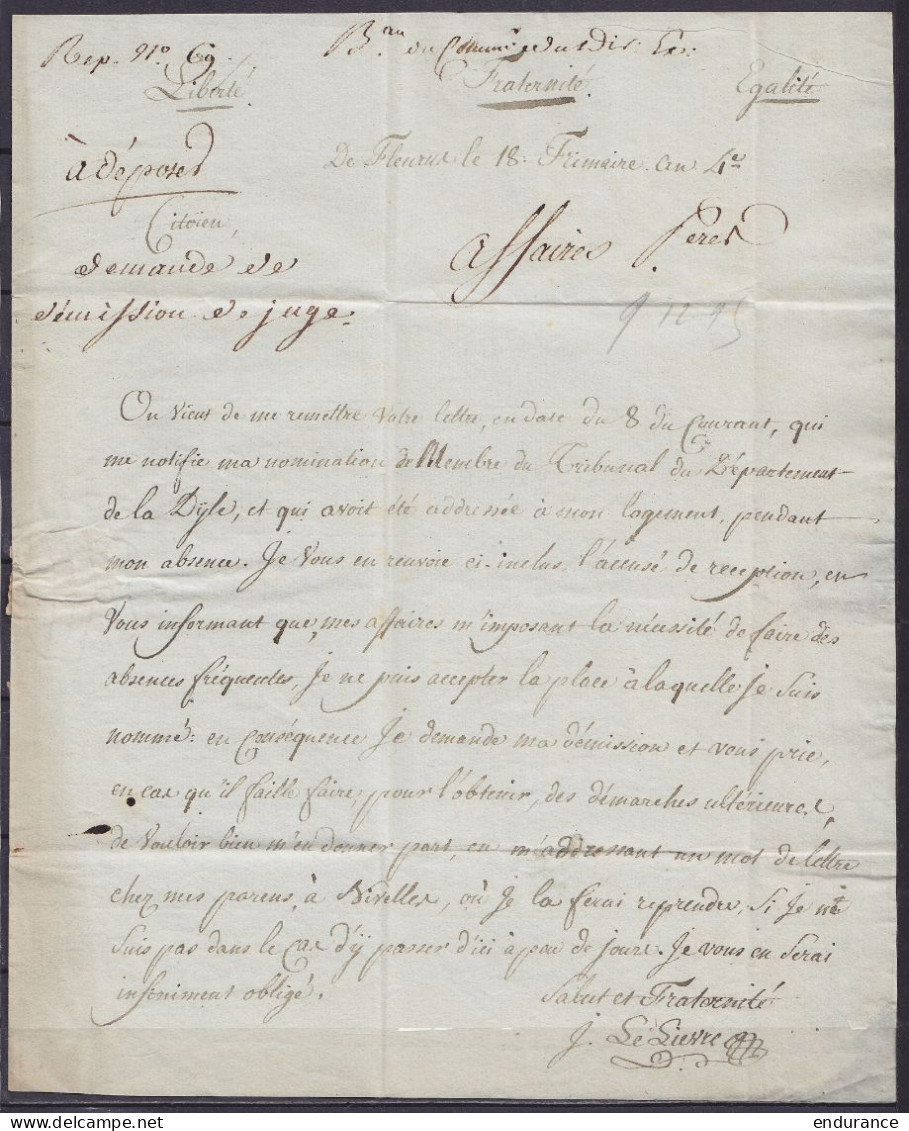 Rep. N° 69.
Bau du Comm. du Dir. Ex:
Liberté
Fraternité.
Egalité
à déposer
De Fleurus le 18. Frimaire an 4e
Citoïen,
Affaires Pères
demande de
démission de juge.
9 12 95
On vient de me remettre votre lettre, en date du 8 du Courant, qui
me notifie ma nomination de Membre du Tribunal du Département
de la Dÿle, et qui avoit été addressée à mon logement, pendant
mon absence. Je vous en renvoie ci-inclus, l'accusé de reception, en
vous informant que, mes affaires m'imposant la nécessité de faire des
absences fréquentes, Je ne puis accepter la place à laquelle je suis
nommé: en conséquence Je demande ma démission et vous prie,
en cas qu'il faille faire, pour l'obtenir, des démarches ultérieures,
de vouloir bien m'en donner part, en m'addressant un mot de lettre
chez mes parens, à Nivelles, où je la ferai reprendre, si je ne
suis pas dans le cas d'ÿ passer d'ici à peu de jours. Je vous en serai
infiniment obligé.
Salut et Fraternité
J. Le Lievre
endurance